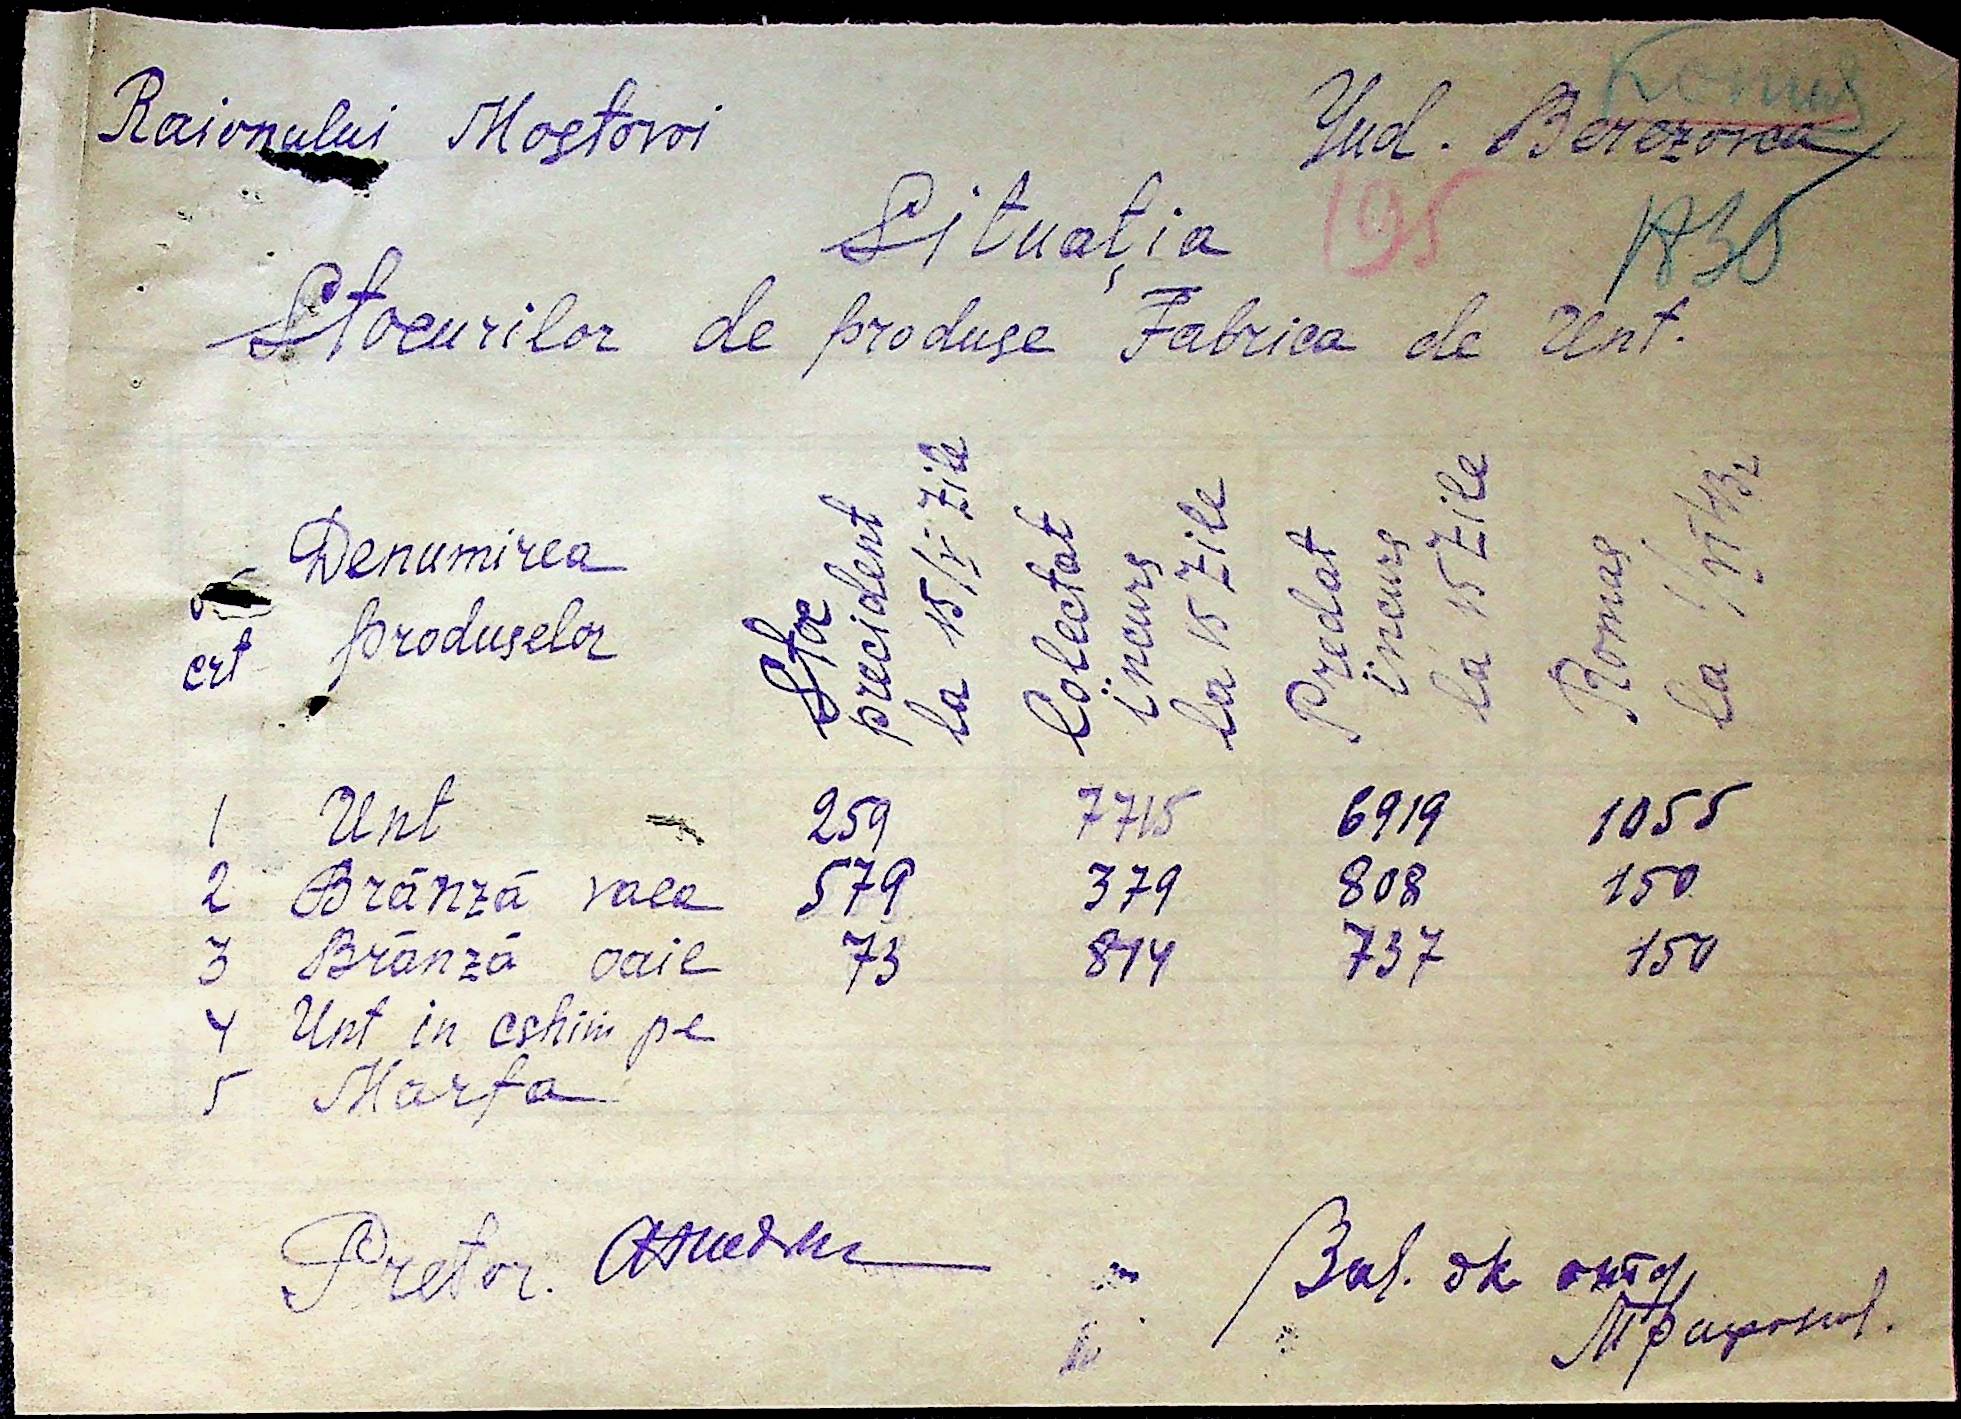 Raionului Mostovoi
Jud. Berezovca
195
1830
Situația
Stocurilor de produse Fabrica de Unt.
crt
Denumirea
produselor
Stoc
precident
la 15/V Zile
Colectat
incurs
la 15 Zile
Predat
incurs
la 15 Zile
Romas
la
1 Unt 259 7715 6919 1055
2 Brănză vaca 579 379 808 150
3 Brănză oaie 73 814 737 150
4 Unt in cshim pe
5 Marfa
Pretor.